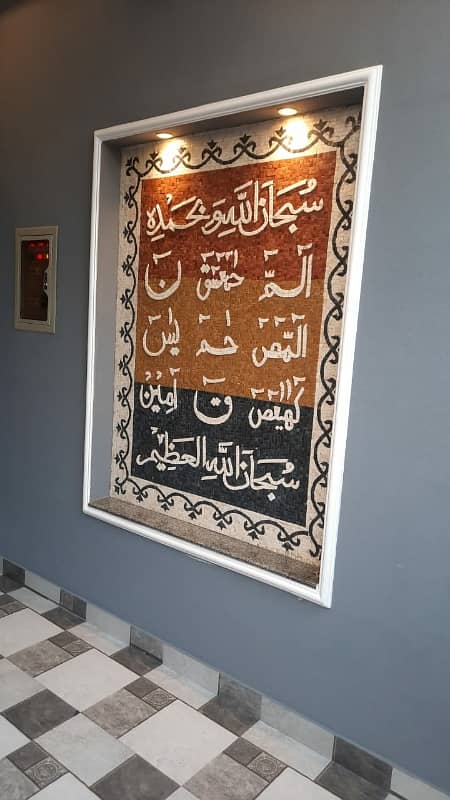 سُبْحَانَ اللهِ وَبِحَمْدِهِ
الٓمّٓ حٰمٓعٓسٓقٓ نٓ
الٓمّٓصٓ حٰمٓ يٰسٓ
كٓهٰيٰعٓصٓ قٓ آمِيْنْ
سُبْحَانَ اللهِ الْعَظِيْم